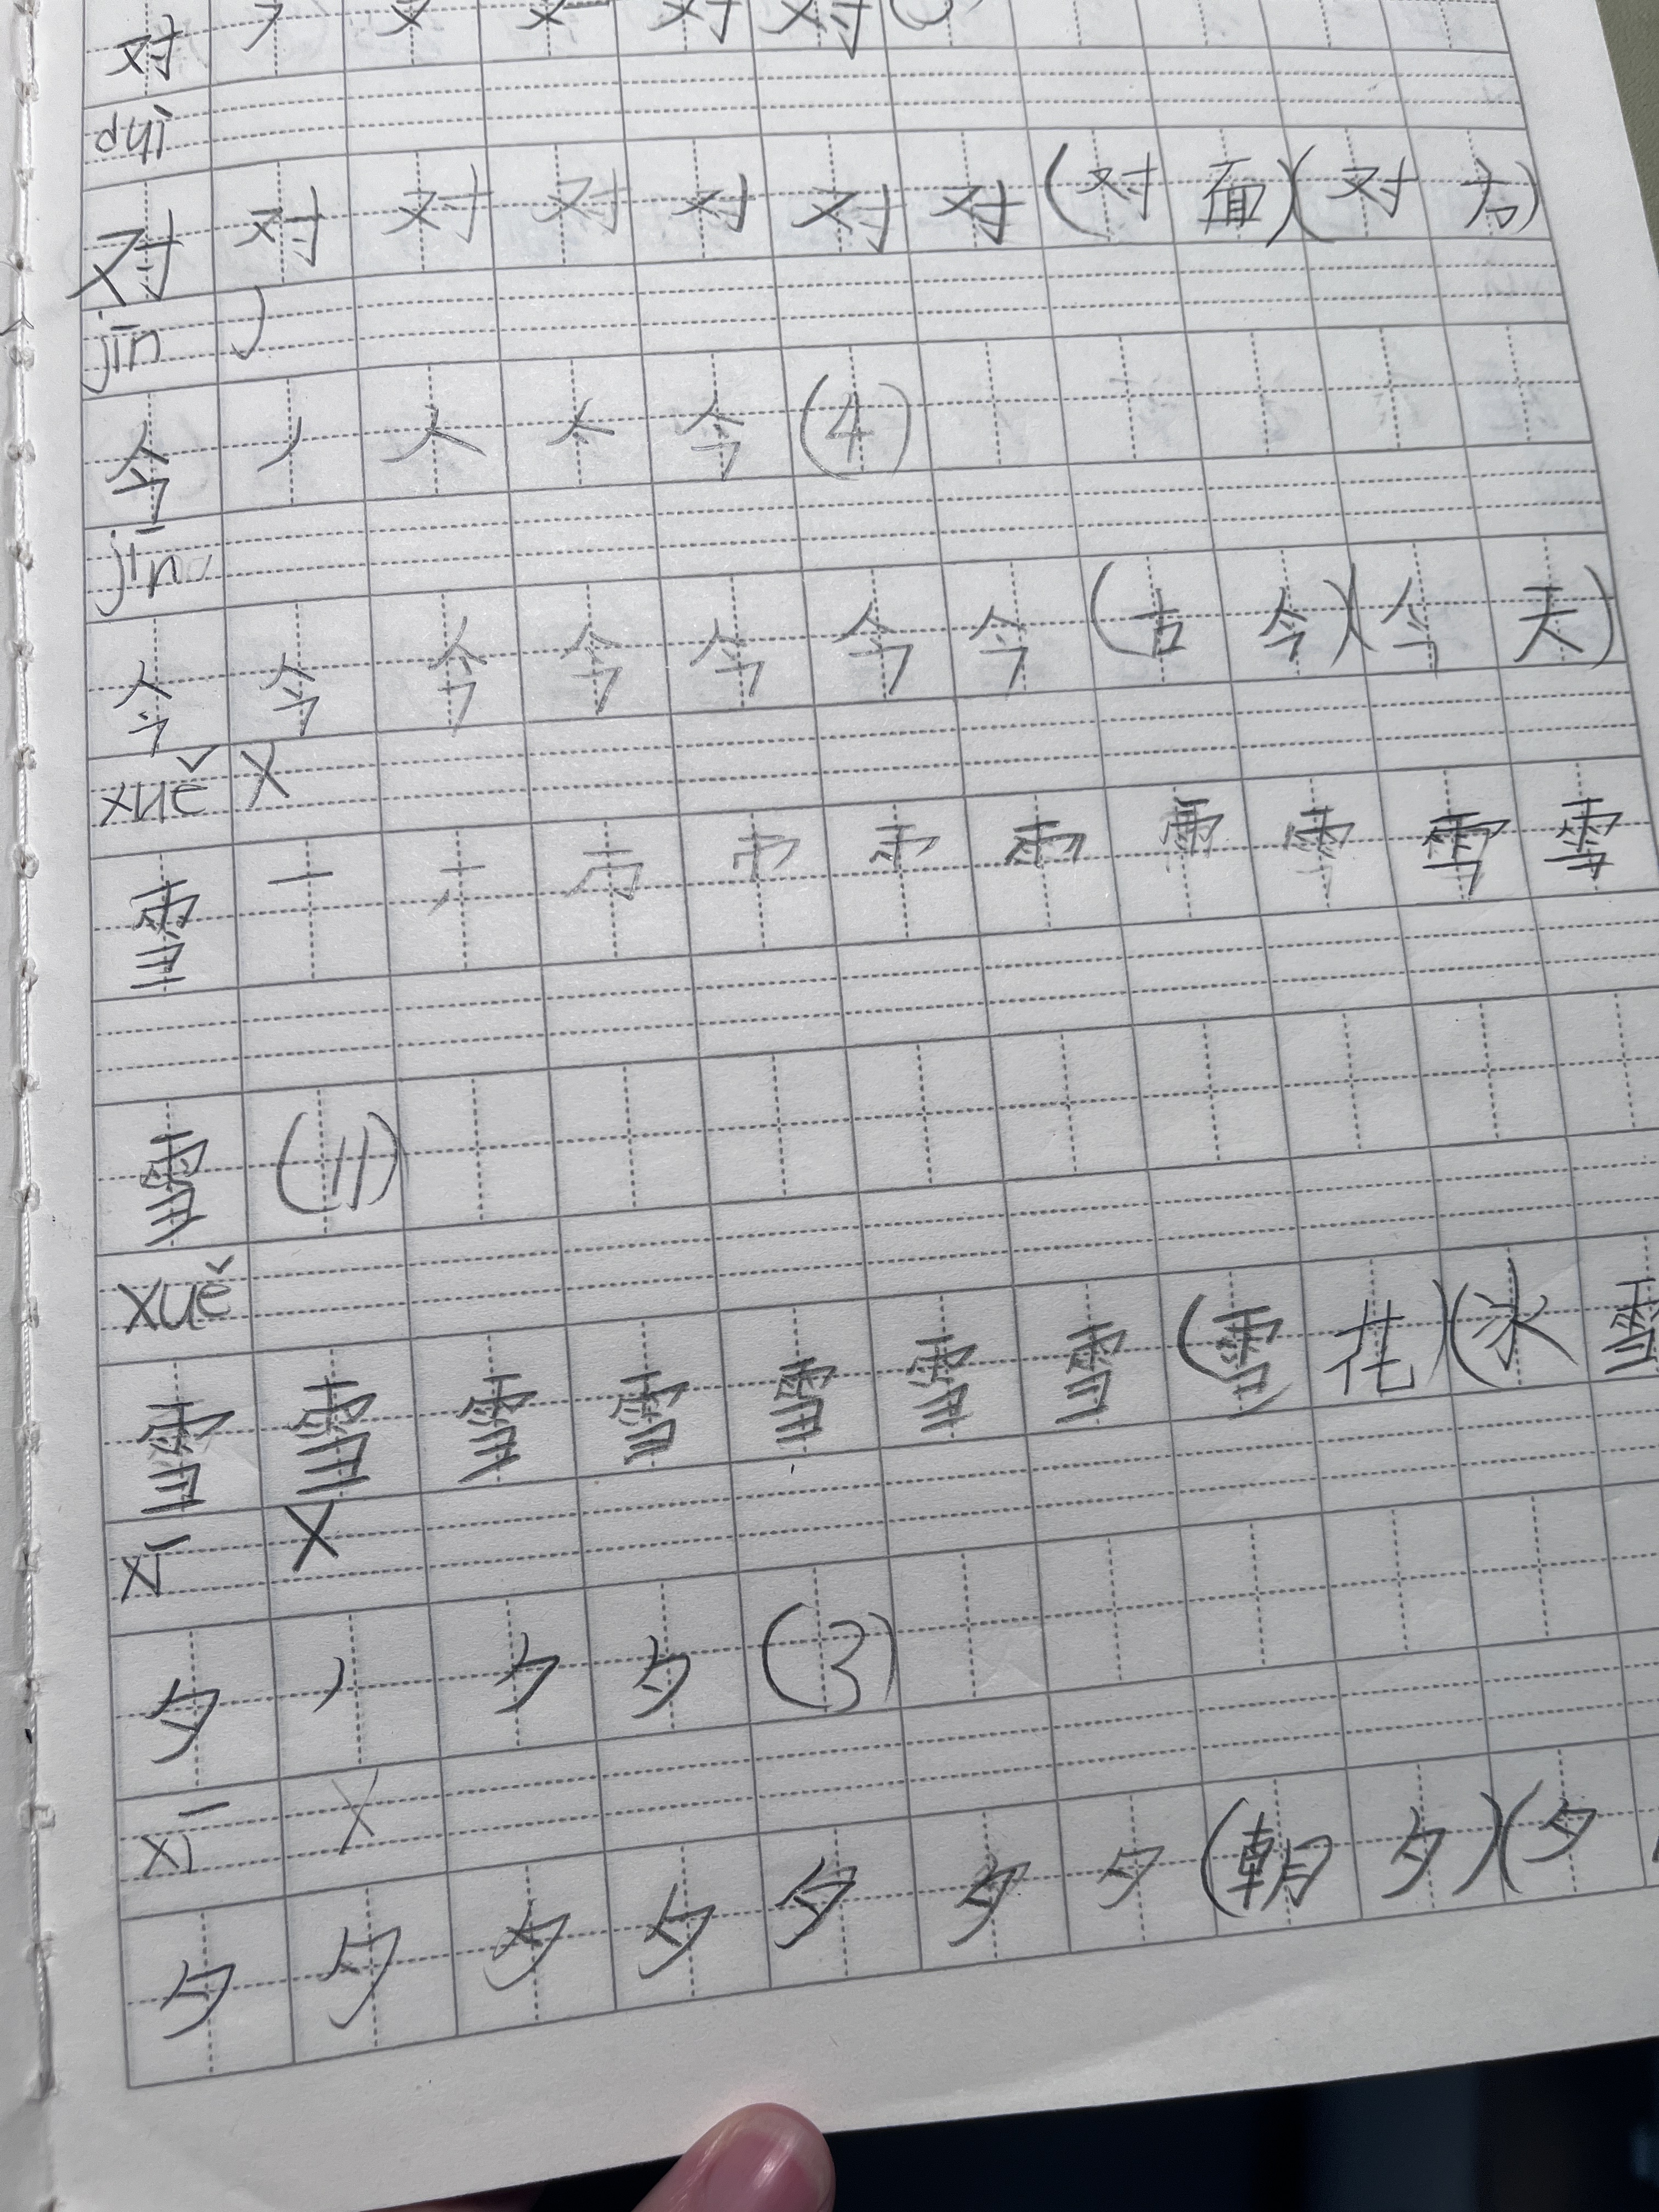 对 对 对
duì
对 对 对 对 对 对 对 (对 面)(对 方)
jīn
今 丿 人 亽 今 (4)
jīn
今 今 今 今 今 今 今 (古 今)(今 天)
xuě X
雪 一 雪 雪
雪 (11)
xuě
雪 雪 雪 雪 雪 雪 雪 (雪 花)(冰 雪
xī X
夕 丿 ク 夕 (3)
xī X
夕 夕 夕 夕 夕 夕 夕 (朝 夕)(夕